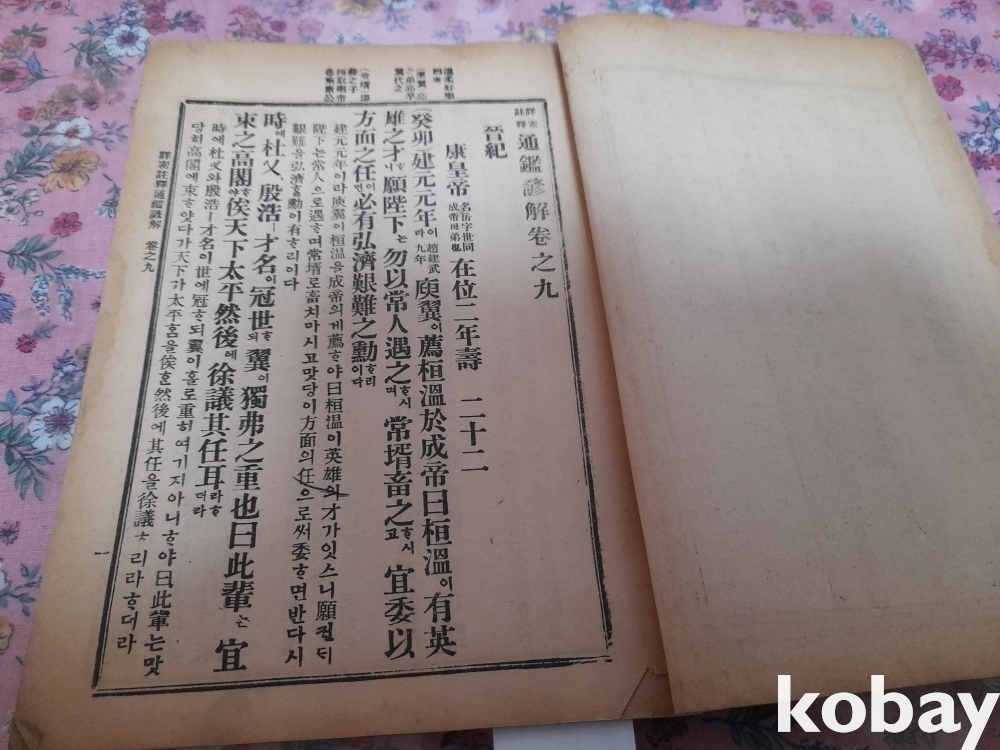 詳密註釋通鑑諺解卷之九
晉紀
康皇帝 名岳字世同成帝母弟也 在位二年壽 二十二
(癸卯)建元元年이라 趙建武九年 庾翼이薦桓溫於成帝曰桓溫이有英
雄之才니願陛下는勿以常人遇之며常壻畜之고宜委以
方面之任이면必有弘濟艱難之勳이리다
建元元年이라庾翼이桓溫을成帝의게薦ᄒᆞ야曰桓溫이英雄의才가잇스니願컨ᄃᆡ
陛下는常人으로遇ᄒᆞ며常壻로畜치마시고맛당이方面의任으로써委ᄒᆞ면반다시
艱難을弘濟ᄒᆞᆯ勳이有ᄒᆞ리이다
時에杜乂、殷浩ㅣ才名이冠世ᄒᆞ되翼이獨弗之重也曰此輩는宜
束之高閣ᄒᆞ야俟天下太平然後에徐議其任耳라ᄒᆞ더라
時에杜乂와殷浩ㅣ才名이世에冠ᄒᆞ되翼이홀로重히여기지아니ᄒᆞ야曰此輩는맛
당히高閣에束ᄒᆞ얏다가天下가太平홈을俟ᄒᆞᆫ然後에其任을徐議ᄒᆞ리라ᄒᆞ더라
詳密註釋通鑑諺解 卷之九
一
kobay